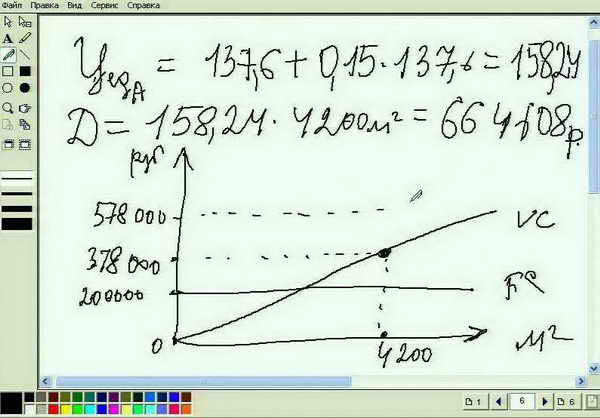 Файл Правка Вид Сервис Справка
Цед A = 137,6 + 0,15 · 137,6 = 158,24
Д = 158,24 · 4200 м² = 664608 р.
руб
578 000
VC
378 000
200000
FC
0
4 200
м²
1
6
6